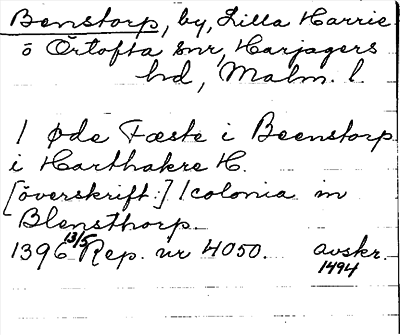 Benstorp, by, Lilla Harrie
o Örtofta snr, Harjagers
hd, Malm. l.
1 øde Fæste i Beenstorp
i Harthakre H.
[överskrift:] 1 colonia in
Blensthorp
1396 13/5 Rep. nr 4050. avskr.
1494